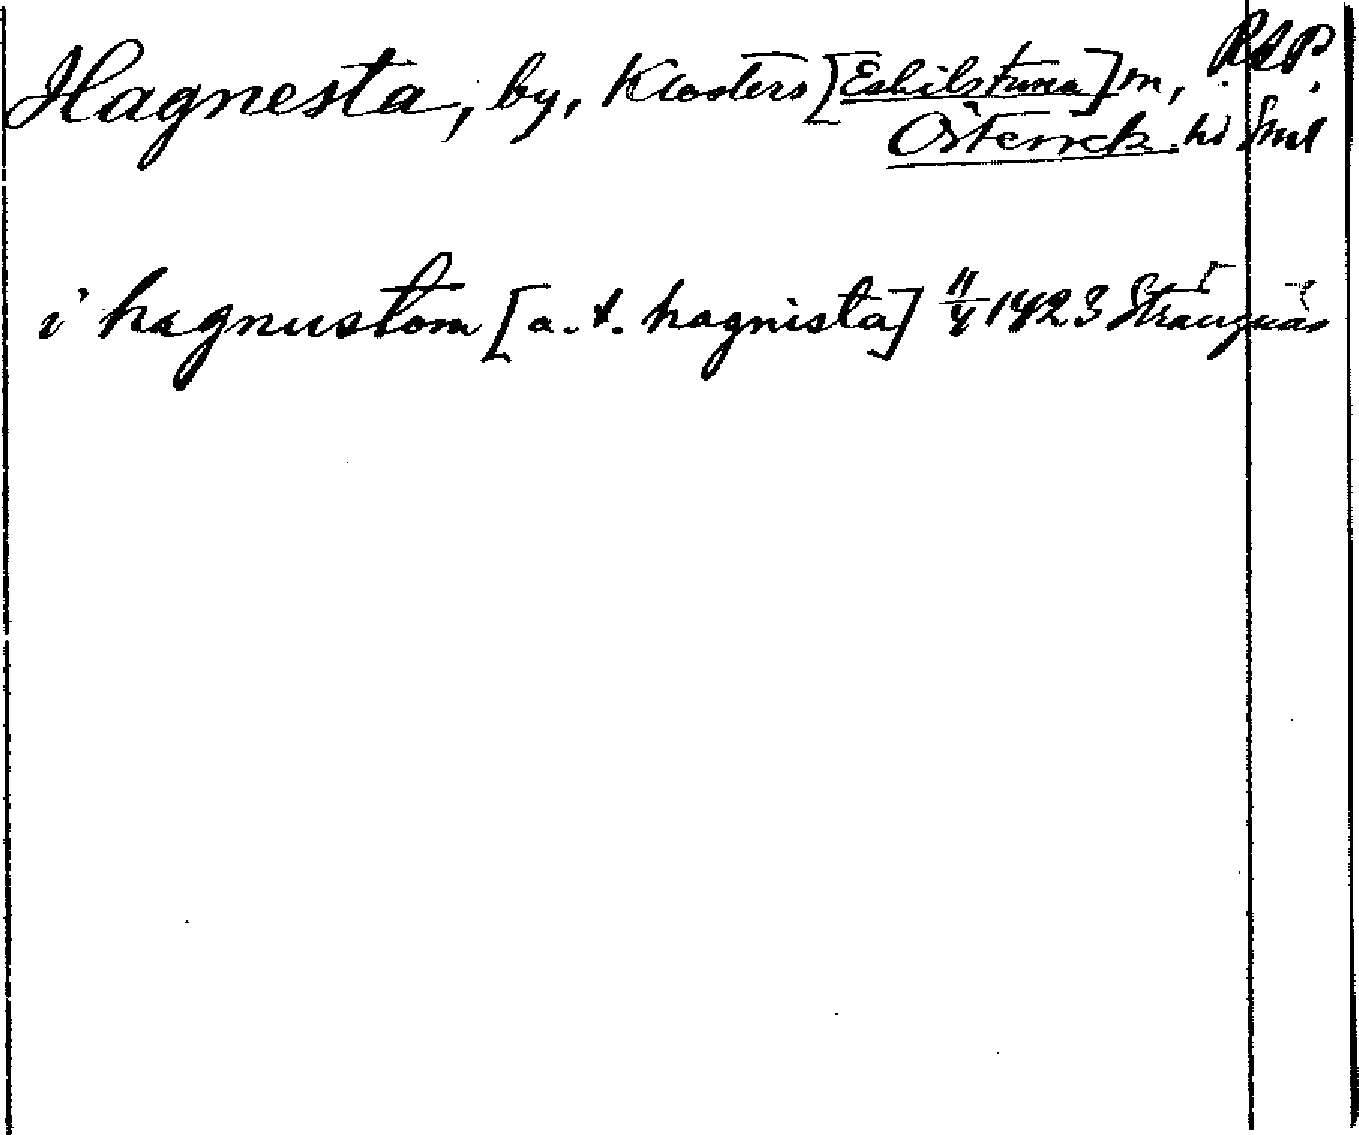 Hagnesta, by, Klosters [Eskilstuna] sn, RAP.
Österrek. hd Sml
i hagnustom [a. t. hagnista] 11/4 1423 Strängnäs